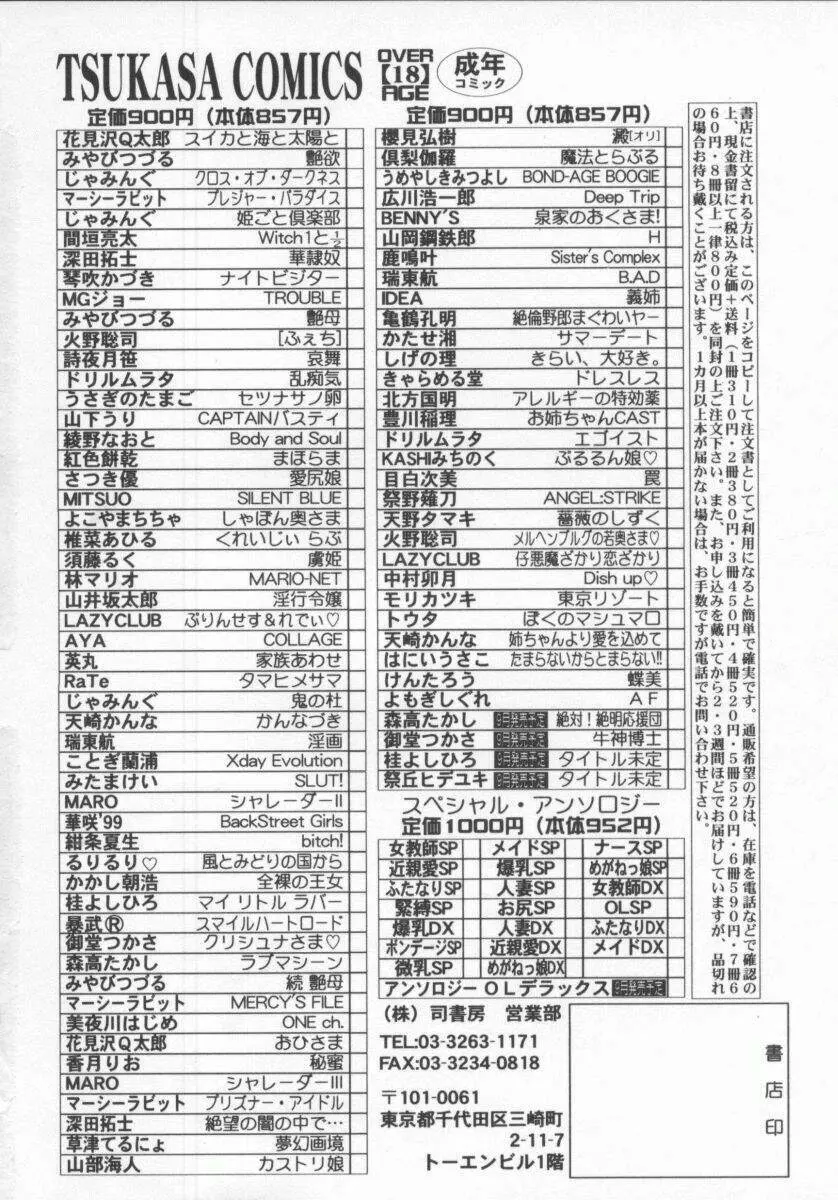 TSUKASA COMICS
OVER
【18】
AGE
成年
コミック
定価900円（本体857円）
花見沢Q太郎 スイカと海と太陽と
みやびつづる 艶欲
じゃみんぐ クロス・オブ・ダークネス
マーシーラビット プレジャー・パラダイス
じゃみんぐ 姫ごと倶楽部
間垣亮太 Witch1と½
深田拓士 華隷奴
琴吹かづき ナイトビジター
MGジョー TROUBLE
みやびつづる 艶母
火野聡司 [ふぇち]
詩夜月笹 哀舞
ドリルムラタ 乱痴気
うさぎのたまご セツナサノ卵
山下うり CAPTAINバスティ
綾野なおと Body and Soul
紅色餅乾 まほらま
さつき優 愛尻娘
MITSUO SILENT BLUE
よこやまちちゃ しゃぼん奥さま
椎菜あひる くれいじぃ らぶ
須藤るく 虜姫
林マリオ MARIO-NET
山井坂太郎 淫行令嬢
LAZYCLUB ぷりんせす&れでぃ♡
AYA COLLAGE
英丸 家族あわせ
RaTe タマヒメサマ
じゃみんぐ 鬼の杜
天崎かんな かんなづき
瑞東航 淫画
ことぎ蘭浦 Xday Evolution
みたまけい SLUT!
MARO シャレーダーII
華咲'99 BackStreet Girls
紺条夏生 bitch!
るりるり♡ 風とみどりの国から
かかし朝浩 全裸の王女
桂よしひろ マイ リトル ラバー
暴武Ⓡ スマイルハートロード
御堂つかさ クリシュナさま♡
森高たかし ラブマシーン
みやびつづる 続 艶母
マーシーラビット MERCY'S FILE
美夜川はじめ ONE ch.
花見沢Q太郎 おひさま
香月りお 秘蜜
MARO シャレーダーIII
マーシーラビット プリズナー・アイドル
深田拓士 絶望の闇の中で…
草津てるにょ 夢幻画境
山部海人 カストリ娘
定価900円（本体857円）
櫻見弘樹 澱[オリ]
倶梨伽羅 魔法とらぶる
うめやしきみつよし BOND-AGE BOOGIE
広川浩一郎 Deep Trip
BENNY'S 泉家のおくさま!
山岡鋼鉄郎 H
鹿鳴叶 Sister's Complex
瑞東航 B.A.D
IDEA 義姉
亀鶴孔明 絶倫野郎まぐわいヤー
かたせ湘 サマーデート
しげの理 きらい、大好き。
きゃらめる堂 ドレスレス
北方国明 アレルギーの特効薬
豊川稲理 お姉ちゃんCAST
ドリルムラタ エゴイスト
KASHIみちのく ぷるるん娘♡
目白次美 罠
祭野薙刀 ANGEL:STRIKE
天野タマキ 薔薇のしずく
火野聡司 メルヘンブルグの若奥さま♡
LAZYCLUB 仔悪魔ざかり恋ざかり
中村卯月 Dish up♡
モリカツキ 東京リゾート
トウタ ぼくのマシュマロ
天崎かんな 姉ちゃんより愛を込めて
はにいうさこ たまらないからとまらない!!
けんたろう 蝶美
よもぎしぐれ AF
森高たかし 9月発売予定 絶対！絶明応援団
御堂つかさ 9月発売予定 牛神博士
桂よしひろ 9月発売予定 タイトル未定
祭丘ヒデユキ 9月発売予定 タイトル未定
スペシャル・アンソロジー
定価1000円（本体952円）
女教師SP メイドSP ナースSP
近親愛SP 爆乳SP めがねっ娘SP
ふたなりSP 人妻SP 女教師DX
緊縛SP お尻SP OLSP
爆乳DX 人妻DX ふたなりDX
ボンデージSP 近親愛DX メイドDX
微乳SP めがねっ娘DX
アンソロジーOLデラックス 9月発売予定
(株) 司書房 営業部
TEL:03-3263-1171
FAX:03-3234-0818
〒101-0061
東京都千代田区三崎町
2-11-7
トーエンビル1階
書店印
書店に注文される方は、このページをコピーして注文書としてご利用になると簡単で確実です。通販希望の方は、在庫を電話などで確認の
上、現金書留にて税込み定価＋送料（1冊310円・2冊380円・3冊450円・4冊520円・5冊520円・6冊590円・7冊6
60円・8冊以上一律800円）を同封の上ご注文下さい。また、お申し込みを戴いてから2・3週間ほどでお届けしていますが、品切れ
の場合お待ち戴くことがございます。1カ月以上本が届かない場合は、お手数ですが電話でお問い合わせ下さい。